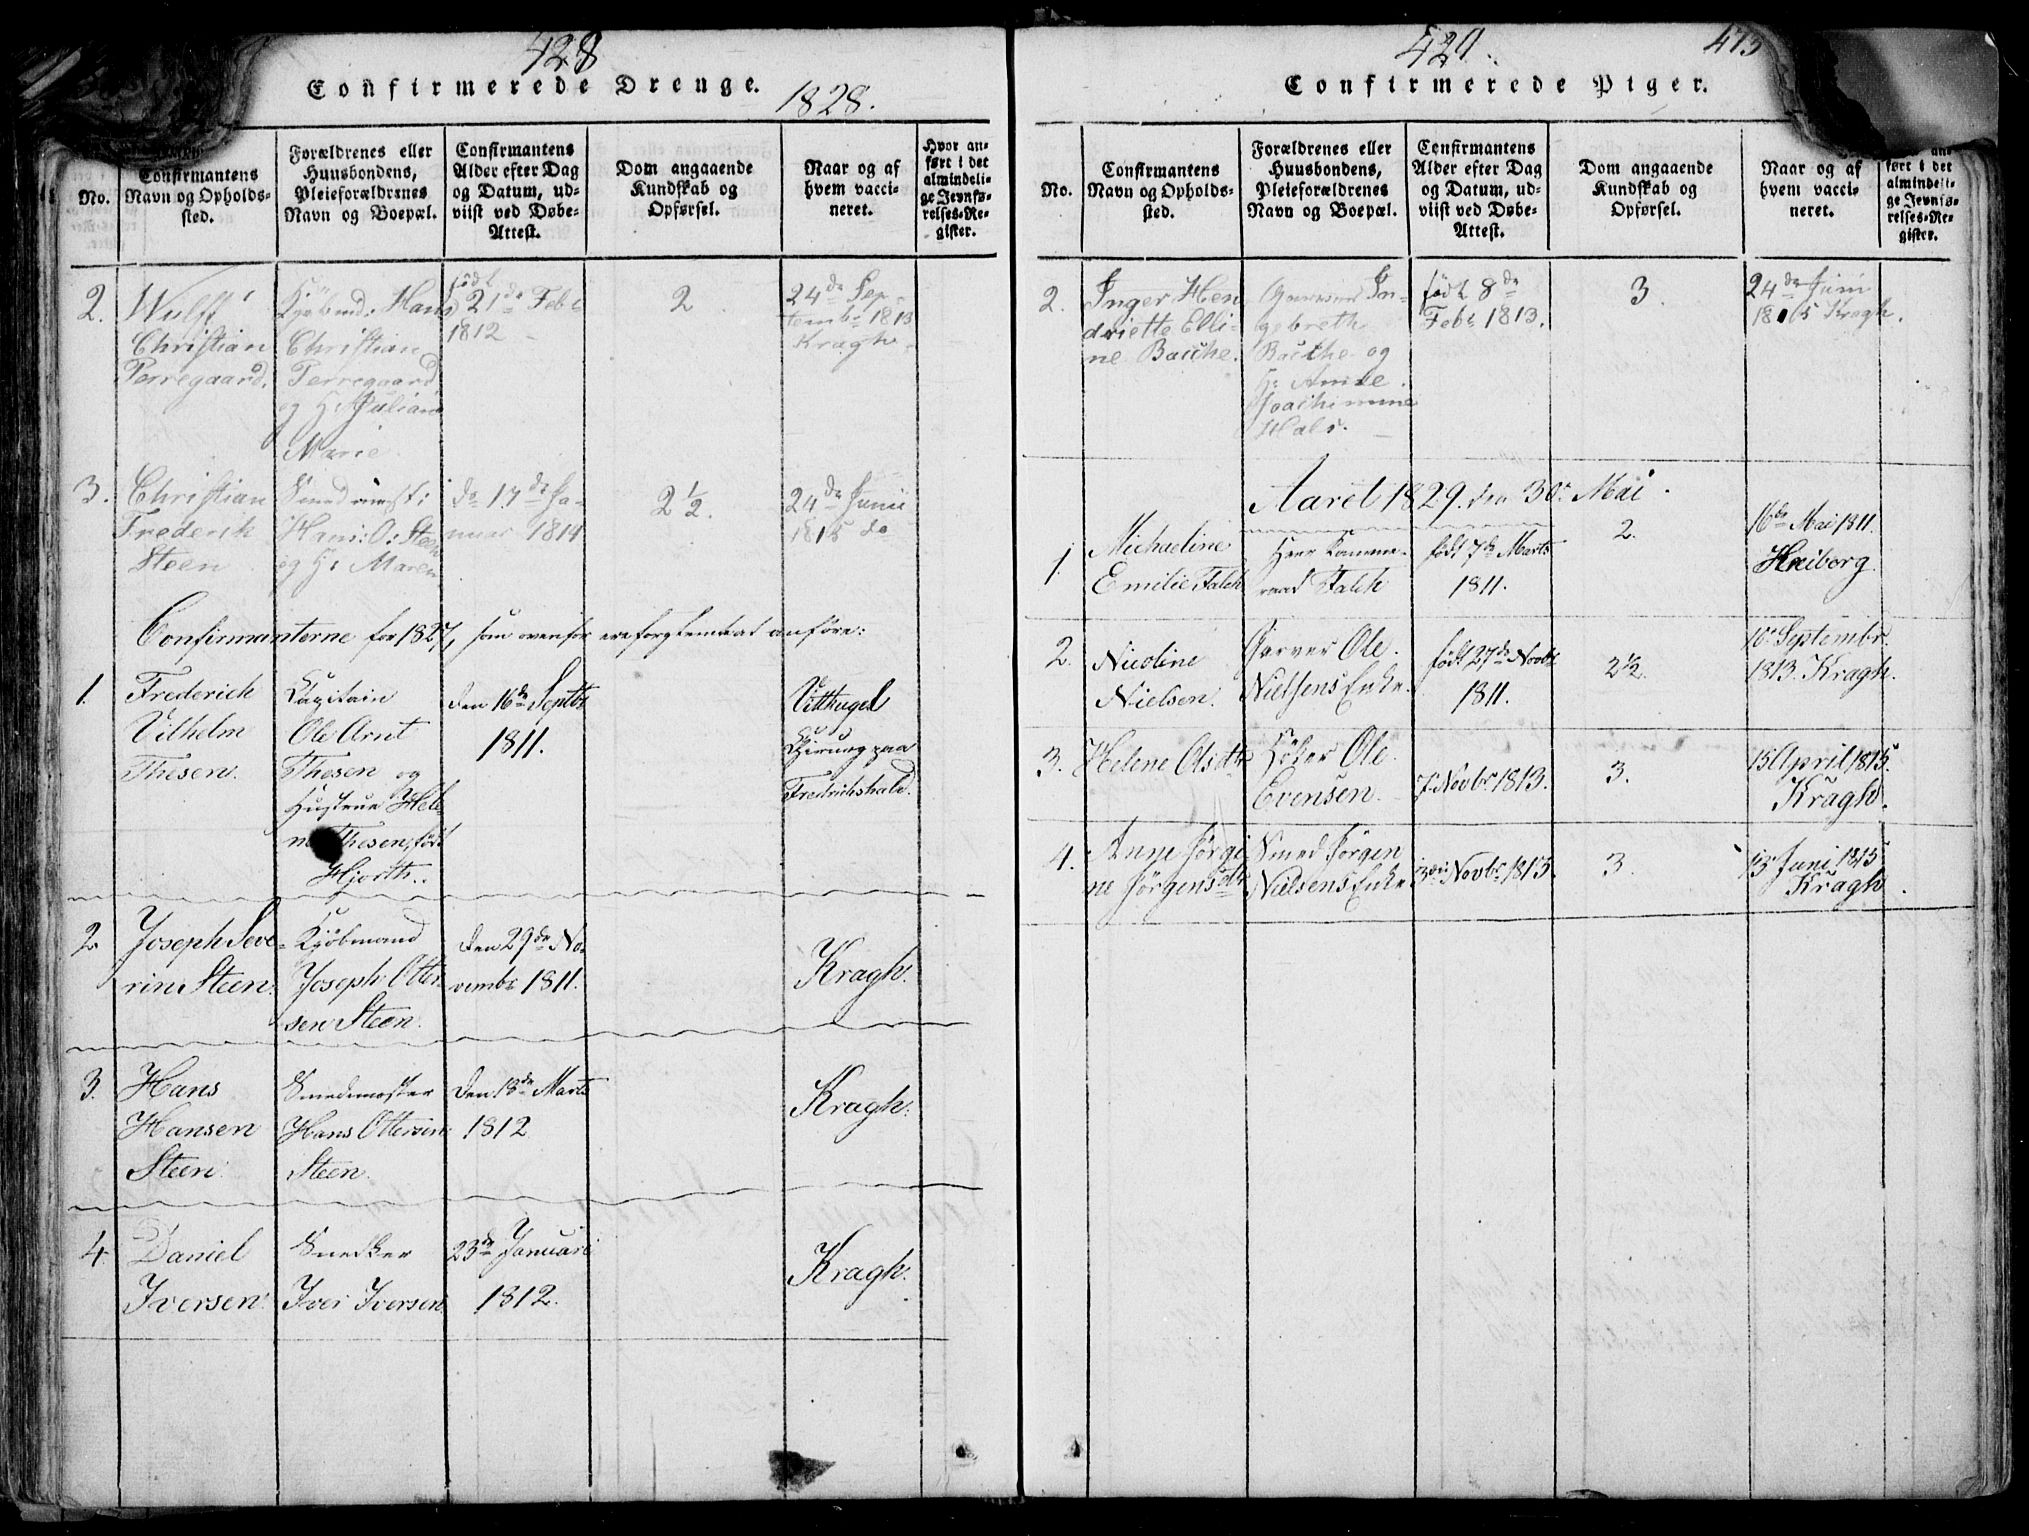 428
Confirmerede Drenge.
1828.
No.
Confirmantens
Navn og Opholds-
sted.
Forældrenes eller
Huusbondens,
Pleieforældrenes
Navn og Boepæl.
Confirmantens
Alder efter Dag
og Datum, ud-
viist ved Døbe-
Attest.
Dom angaaende
Kundskab og
Opførsel.
Naar og af
hvem vacci-
neret.
Hvor an-
ført i det
almindeli-
ge Jevnfø-
relses-Re-
gister.
2.
Wulff
Christian
Perregaard.
Kjöbmd: Hans
Christian
Perregaard
og H: Julian
Marie
födt
21de Feb:
1812
2
24de Sep-
tembr 1813
Kragh
3.
Christian
Frederik
Steen
Hans: O: Steen
og H: Maren
do 17de Ja-
nuar 1814
2 1/2.
24de Junii
1815 do
Confirmanterne for 1827, som ovenfor ere forglemt at anføre:
1.
Frederich
Vilhelm
Thesen.
Capitain
Ole Arnt
Thesen og
Hustrue Hele-
ne Thesen, föd
Hjorth.
den 16de Septbr
1811.
Kirurg paa
Fredrichshald.
2.
Joseph Seve-
rin Steen.
Kjöbmand
Joseph Otter-
sen Steen.
den 29de No-
vembr 1811.
Kragh.
3.
Hans
Hansen
Steen.
Smedmester
Hans Ottersen
Steen.
den 18de Marts
1812
Kragh.
4.
Daniel
Iversen.
Snedker
Iver Iversen
23de Januari
1812.
Kragh.
429.
473
Confirmerede Piger.
No.
Confirmantens
Navn og Opholds-
sted.
Forældrenes eller
Huusbondens,
Pleieforældrenes
Navn og Boepæl.
Confirmantens
Alder efter Dag
og Datum, ud-
viist ved Døbe-
Attest.
Dom angaaende
Kundskab og
Opførsel.
Naar og af
hvem vacci-
neret.
an-
ført i det
almindeli-
ge Jevnfø-
relses-Re-
gister.
2.
Inger Hen
driette Elli-
ne Bache.
In-
gebreth
Bache og
H: Anne
Joachimme
Hals.
födt 8de
Feb: 1813.
3.
24de Juni
1815 Kragh.
Aaret 1829. den 30te Mai.
1.
Michaeline
Emilie Falch
Herr Kamme-
raad Falch
födt 7de Marts
1811.
2.
16de Mai 1811.
Heiborg.
2.
Nicoline
Nielsen.
Garver Ole
Nielsens Enke.
födt 27de Novbr
1811.
2 1/2.
10de Septembr.
1813. Kragh.
3.
Helene Olsdtr
Höker Ole
Evensen.
7de Novbr. 1813.
3.
15 April 1815.
Kragh.
4.
Anne Jörgi-
ne Jörgensdtr
Smed Jörgen
Nielsens Enke
Novbr. 1813.
3.
13de Juni 1815
Kragh.